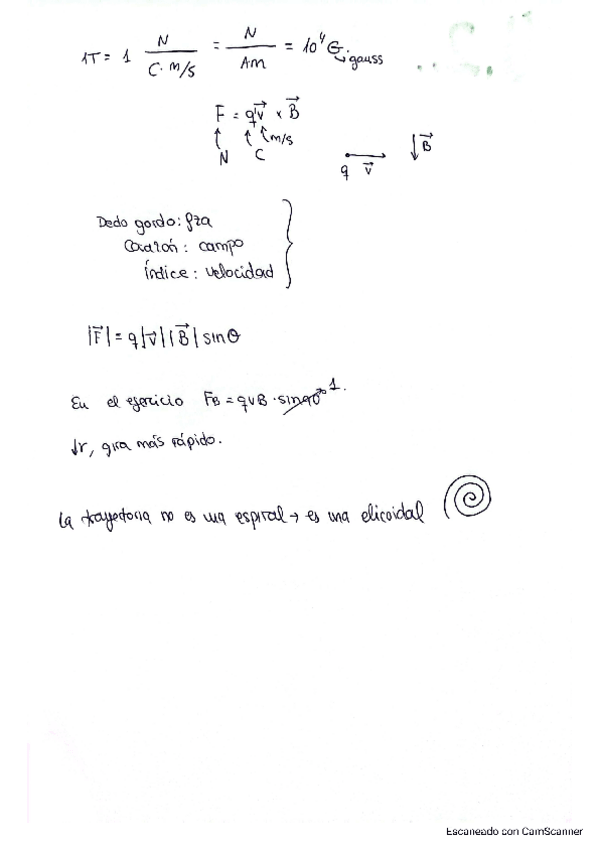 1T = 1 N / C·m/s = N / Am = 10⁴ G.
gauss
F = qv⃗ × B⃗
m/s
N C
q v⃗
B⃗
Dedo gordo: fza
Corazón: campo
Índice: velocidad
|F⃗| = q|v⃗||B⃗| sinθ
En el ejercicio F_B = qvB · sin90 1.
↓r, gira más rápido.
La trayectoria no es una espiral → es una elicoidal
Escaneado con CamScanner